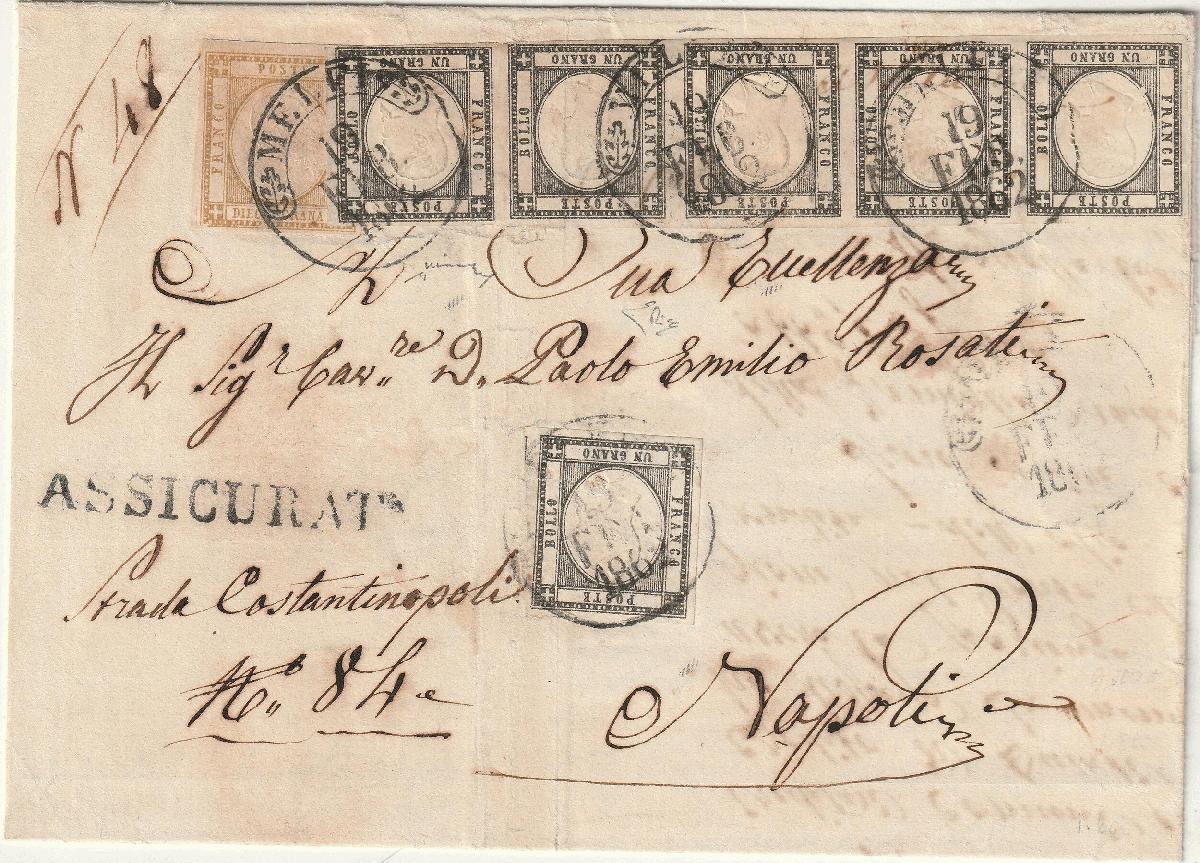 N 48
FRANCO
POSTE
DIECI GRANA
UN GRANO BOLLO FRANCO POSTE
UN GRANO BOLLO FRANCO POSTE
UN GRANO BOLLO FRANCO POSTE
UN GRANO BOLLO FRANCO POSTE
UN GRANO BOLLO FRANCO POSTE
MELFI
19
FEB.
1862
A Sua Eccellenza
Il Sigr Cavre D. Paolo Emilio Rosati
UN GRANO BOLLO FRANCO POSTE
ASSICURATA
Strada Costantinopoli
No. 84
Napoli